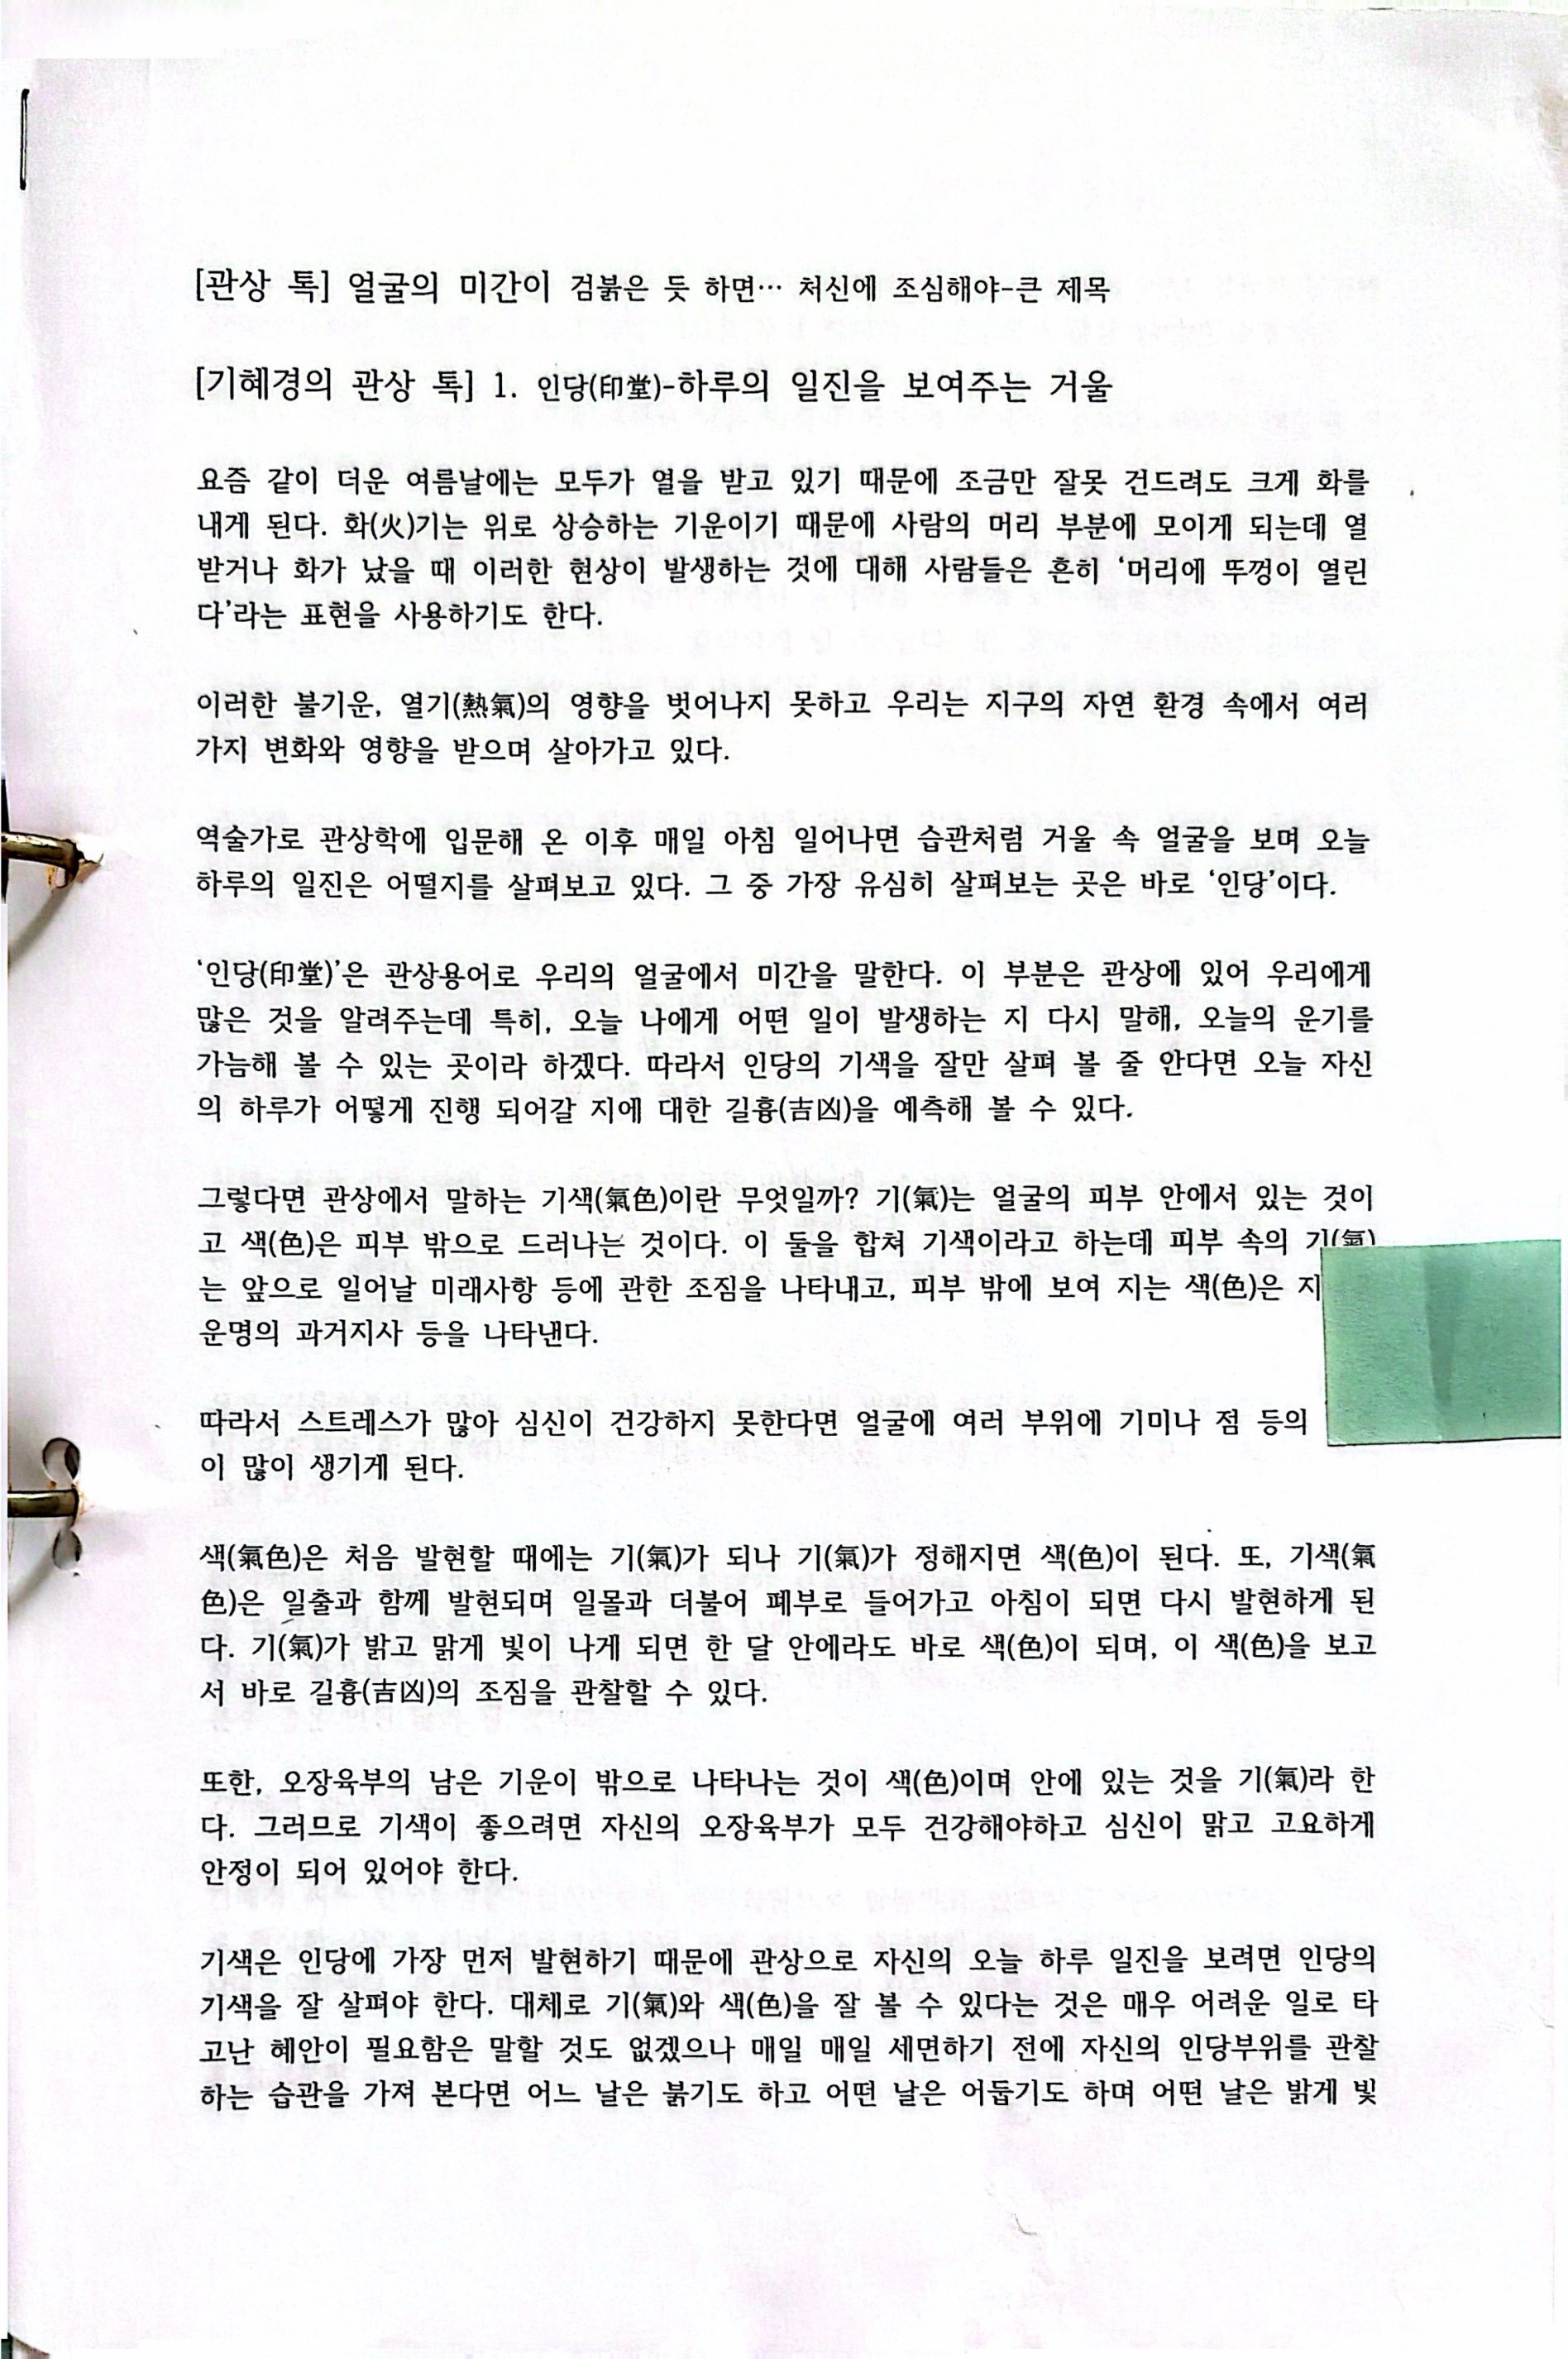 [관상 톡] 얼굴의 미간이 검붉은 듯 하면… 처신에 조심해야-큰 제목
[기혜경의 관상 톡] 1. 인당(印堂)-하루의 일진을 보여주는 거울
요즘 같이 더운 여름날에는 모두가 열을 받고 있기 때문에 조금만 잘못 건드려도 크게 화를
내게 된다. 화(火)기는 위로 상승하는 기운이기 때문에 사람의 머리 부분에 모이게 되는데 열
받거나 화가 났을 때 이러한 현상이 발생하는 것에 대해 사람들은 흔히 ‘머리에 뚜껑이 열린
다’라는 표현을 사용하기도 한다.
이러한 불기운, 열기(熱氣)의 영향을 벗어나지 못하고 우리는 지구의 자연 환경 속에서 여러
가지 변화와 영향을 받으며 살아가고 있다.
역술가로 관상학에 입문해 온 이후 매일 아침 일어나면 습관처럼 거울 속 얼굴을 보며 오늘
하루의 일진은 어떨지를 살펴보고 있다. 그 중 가장 유심히 살펴보는 곳은 바로 ‘인당’이다.
‘인당(印堂)’은 관상용어로 우리의 얼굴에서 미간을 말한다. 이 부분은 관상에 있어 우리에게
많은 것을 알려주는데 특히, 오늘 나에게 어떤 일이 발생하는 지 다시 말해, 오늘의 운기를
가늠해 볼 수 있는 곳이라 하겠다. 따라서 인당의 기색을 잘만 살펴 볼 줄 안다면 오늘 자신
의 하루가 어떻게 진행 되어갈 지에 대한 길흉(吉凶)을 예측해 볼 수 있다.
그렇다면 관상에서 말하는 기색(氣色)이란 무엇일까? 기(氣)는 얼굴의 피부 안에서 있는 것이
고 색(色)은 피부 밖으로 드러나는 것이다. 이 둘을 합쳐 기색이라고 하는데 피부 속의 기(氣)
는 앞으로 일어날 미래사항 등에 관한 조짐을 나타내고, 피부 밖에 보여 지는 색(色)은 지
운명의 과거지사 등을 나타낸다.
따라서 스트레스가 많아 심신이 건강하지 못한다면 얼굴에 여러 부위에 기미나 점 등의
이 많이 생기게 된다.
색(氣色)은 처음 발현할 때에는 기(氣)가 되나 기(氣)가 정해지면 색(色)이 된다. 또, 기색(氣
色)은 일출과 함께 발현되며 일몰과 더불어 폐부로 들어가고 아침이 되면 다시 발현하게 된
다. 기(氣)가 밝고 맑게 빛이 나게 되면 한 달 안에라도 바로 색(色)이 되며, 이 색(色)을 보고
서 바로 길흉(吉凶)의 조짐을 관찰할 수 있다.
또한, 오장육부의 남은 기운이 밖으로 나타나는 것이 색(色)이며 안에 있는 것을 기(氣)라 한
다. 그러므로 기색이 좋으려면 자신의 오장육부가 모두 건강해야하고 심신이 맑고 고요하게
안정이 되어 있어야 한다.
기색은 인당에 가장 먼저 발현하기 때문에 관상으로 자신의 오늘 하루 일진을 보려면 인당의
기색을 잘 살펴야 한다. 대체로 기(氣)와 색(色)을 잘 볼 수 있다는 것은 매우 어려운 일로 타
고난 혜안이 필요함은 말할 것도 없겠으나 매일 매일 세면하기 전에 자신의 인당부위를 관찰
하는 습관을 가져 본다면 어느 날은 붉기도 하고 어떤 날은 어둡기도 하며 어떤 날은 밝게 빛